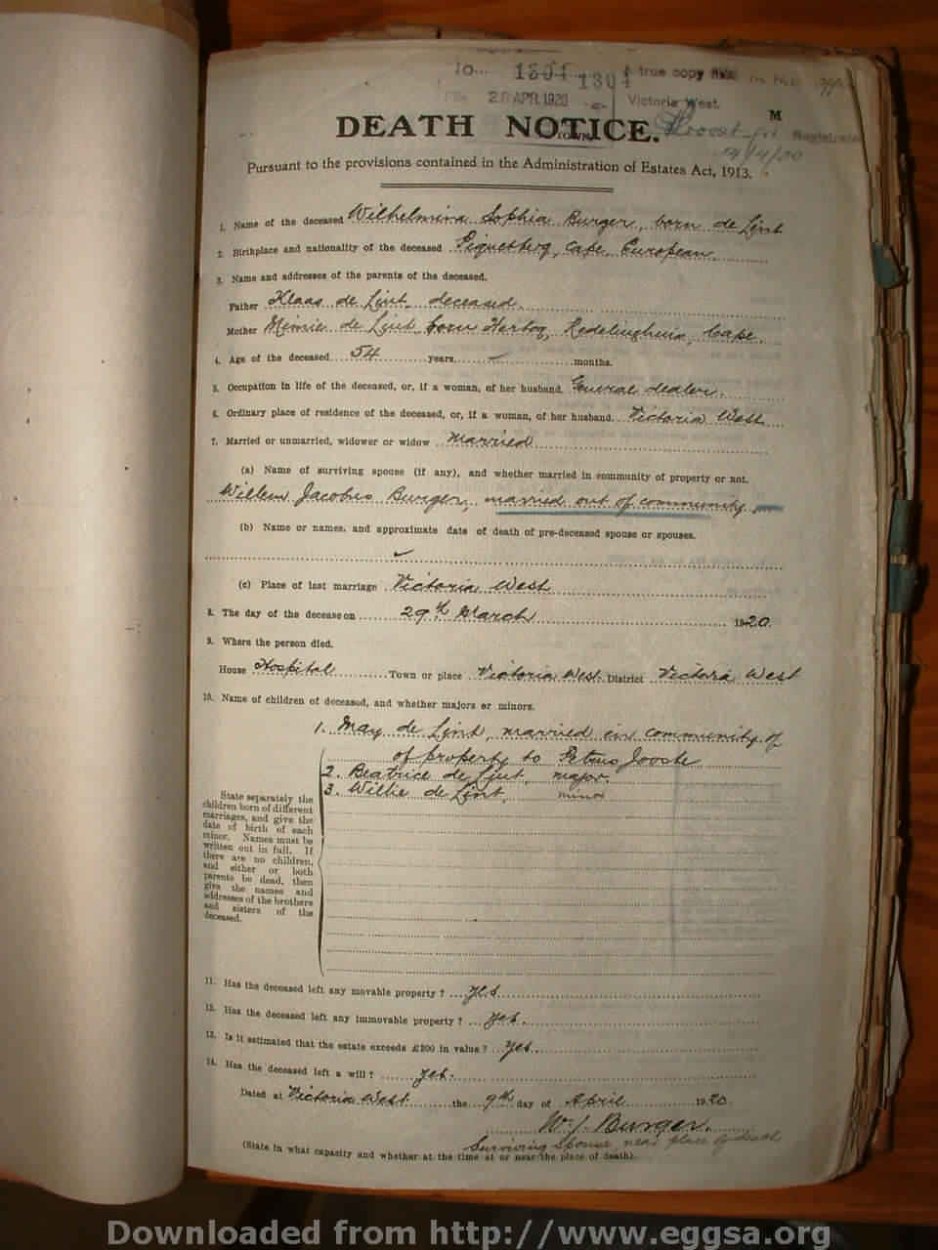 1304 1304 true copy
28 APR 1920 Victoria West.
M
DEATH NOTICE.
Registrar
Pursuant to the provisions contained in the Administration of Estates Act, 1913.
1. Name of the deceased Wilhelmina Sophia Burger, born de Lint
2. Birthplace and nationality of the deceased Piquetberg, Cape European
3. Name and addresses of the parents of the deceased.
Father Klaas de Lint, deceased.
Mother Mimie de Lint born Hartog, Redelinghuis, Cape.
4. Age of the deceased 54 years months.
5. Occupation in life of the deceased, or, if a woman, of her husband. General dealer.
6. Ordinary place of residence of the deceased, or, if a woman, of her husband. Victoria West
7. Married or unmarried, widower or widow Married
(a) Name of surviving spouse (if any), and whether married in community of property or not.
Willem Jacobus Burger, married out of community
(b) Name or names, and approximate date of death of pre-deceased spouse or spouses.
(c) Place of last marriage Victoria West
8. The day of the decease on 29th March 1920.
9. Where the person died.
House Hospital Town or place Victoria West District Victoria West
10. Name of children of deceased, and whether majors or minors.
1. May de Lint, married in community of
of property to Petrus Jooste
2. Beatrice de Lint, major.
3. Willie de Lint, minor
State separately the
children born of different
marriages, and give the
date of birth of each
minor. Names must be
written out in full. If
there are no children,
and either or both
parents be dead, then
give the names and
addresses of the brothers
and sisters of the
deceased.
11. Has the deceased left any movable property? yes
12. Has the deceased left any immovable property? yes.
13. Is it estimated that the estate exceeds £300 in value? yes.
14. Has the deceased left a will? yes.
Dated at Victoria West the 9th day of April 1920.
W. J. Burger.
Surviving Spouse, near place of death
(State in what capacity and whether at the time at or near the place of death).
Downloaded from http://www.eggsa.org